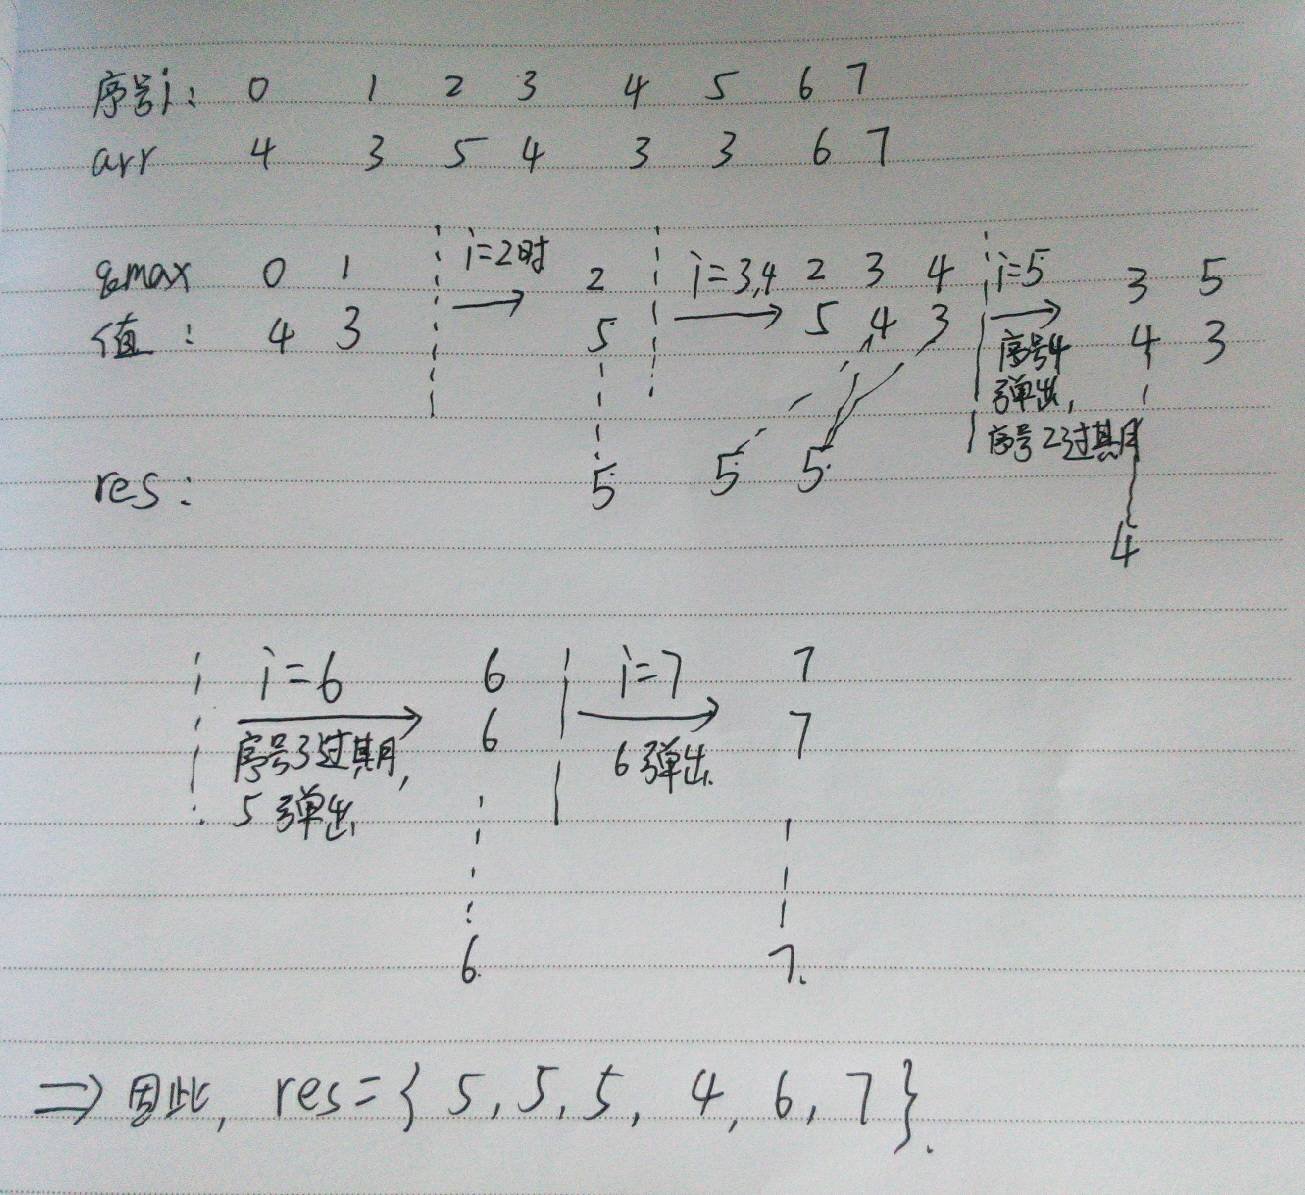 序号i: 0 1 2 3 4 5 6 7
arr 4 3 5 4 3 3 6 7
qmax 0 1 i=2时 2 i=3,4 2 3 4 i=5 3 5
值: 4 3 5 5 4 3 序号4 4 3
弹出,
序号2过期
res: 5 5 5
4
i=6 6 i=7 7
序号3过期, 6 6弹出. 7
5弹出
6. 7.
⇒ 因此, res={ 5, 5, 5, 4, 6, 7 }.